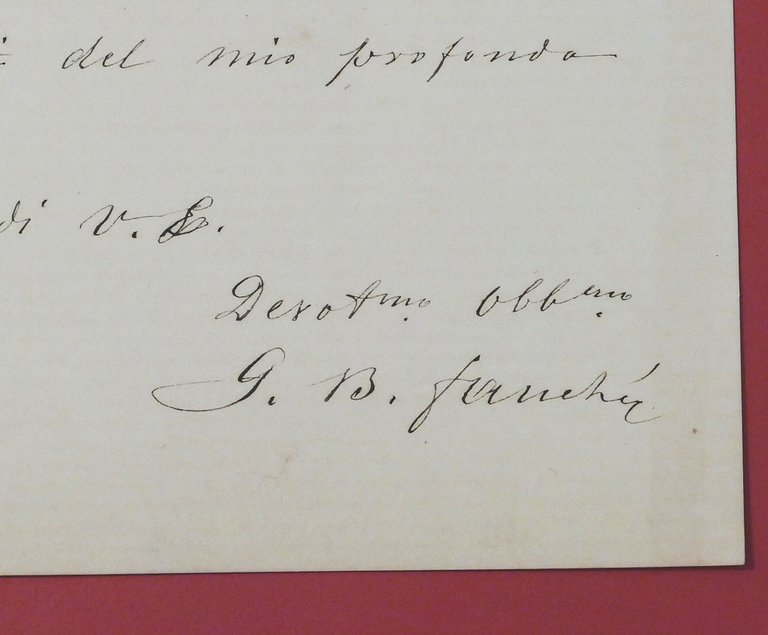 del mio profondo
di V. E.
Devotmo Obbmo
G. B.